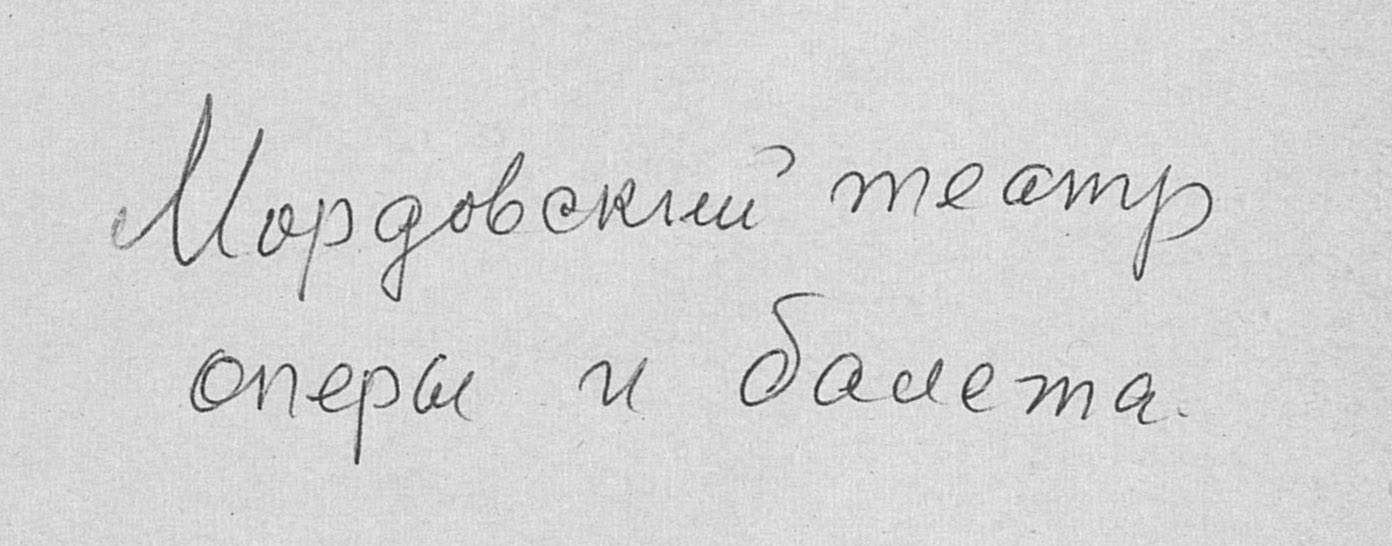 Мордовский театр
оперы и балета.